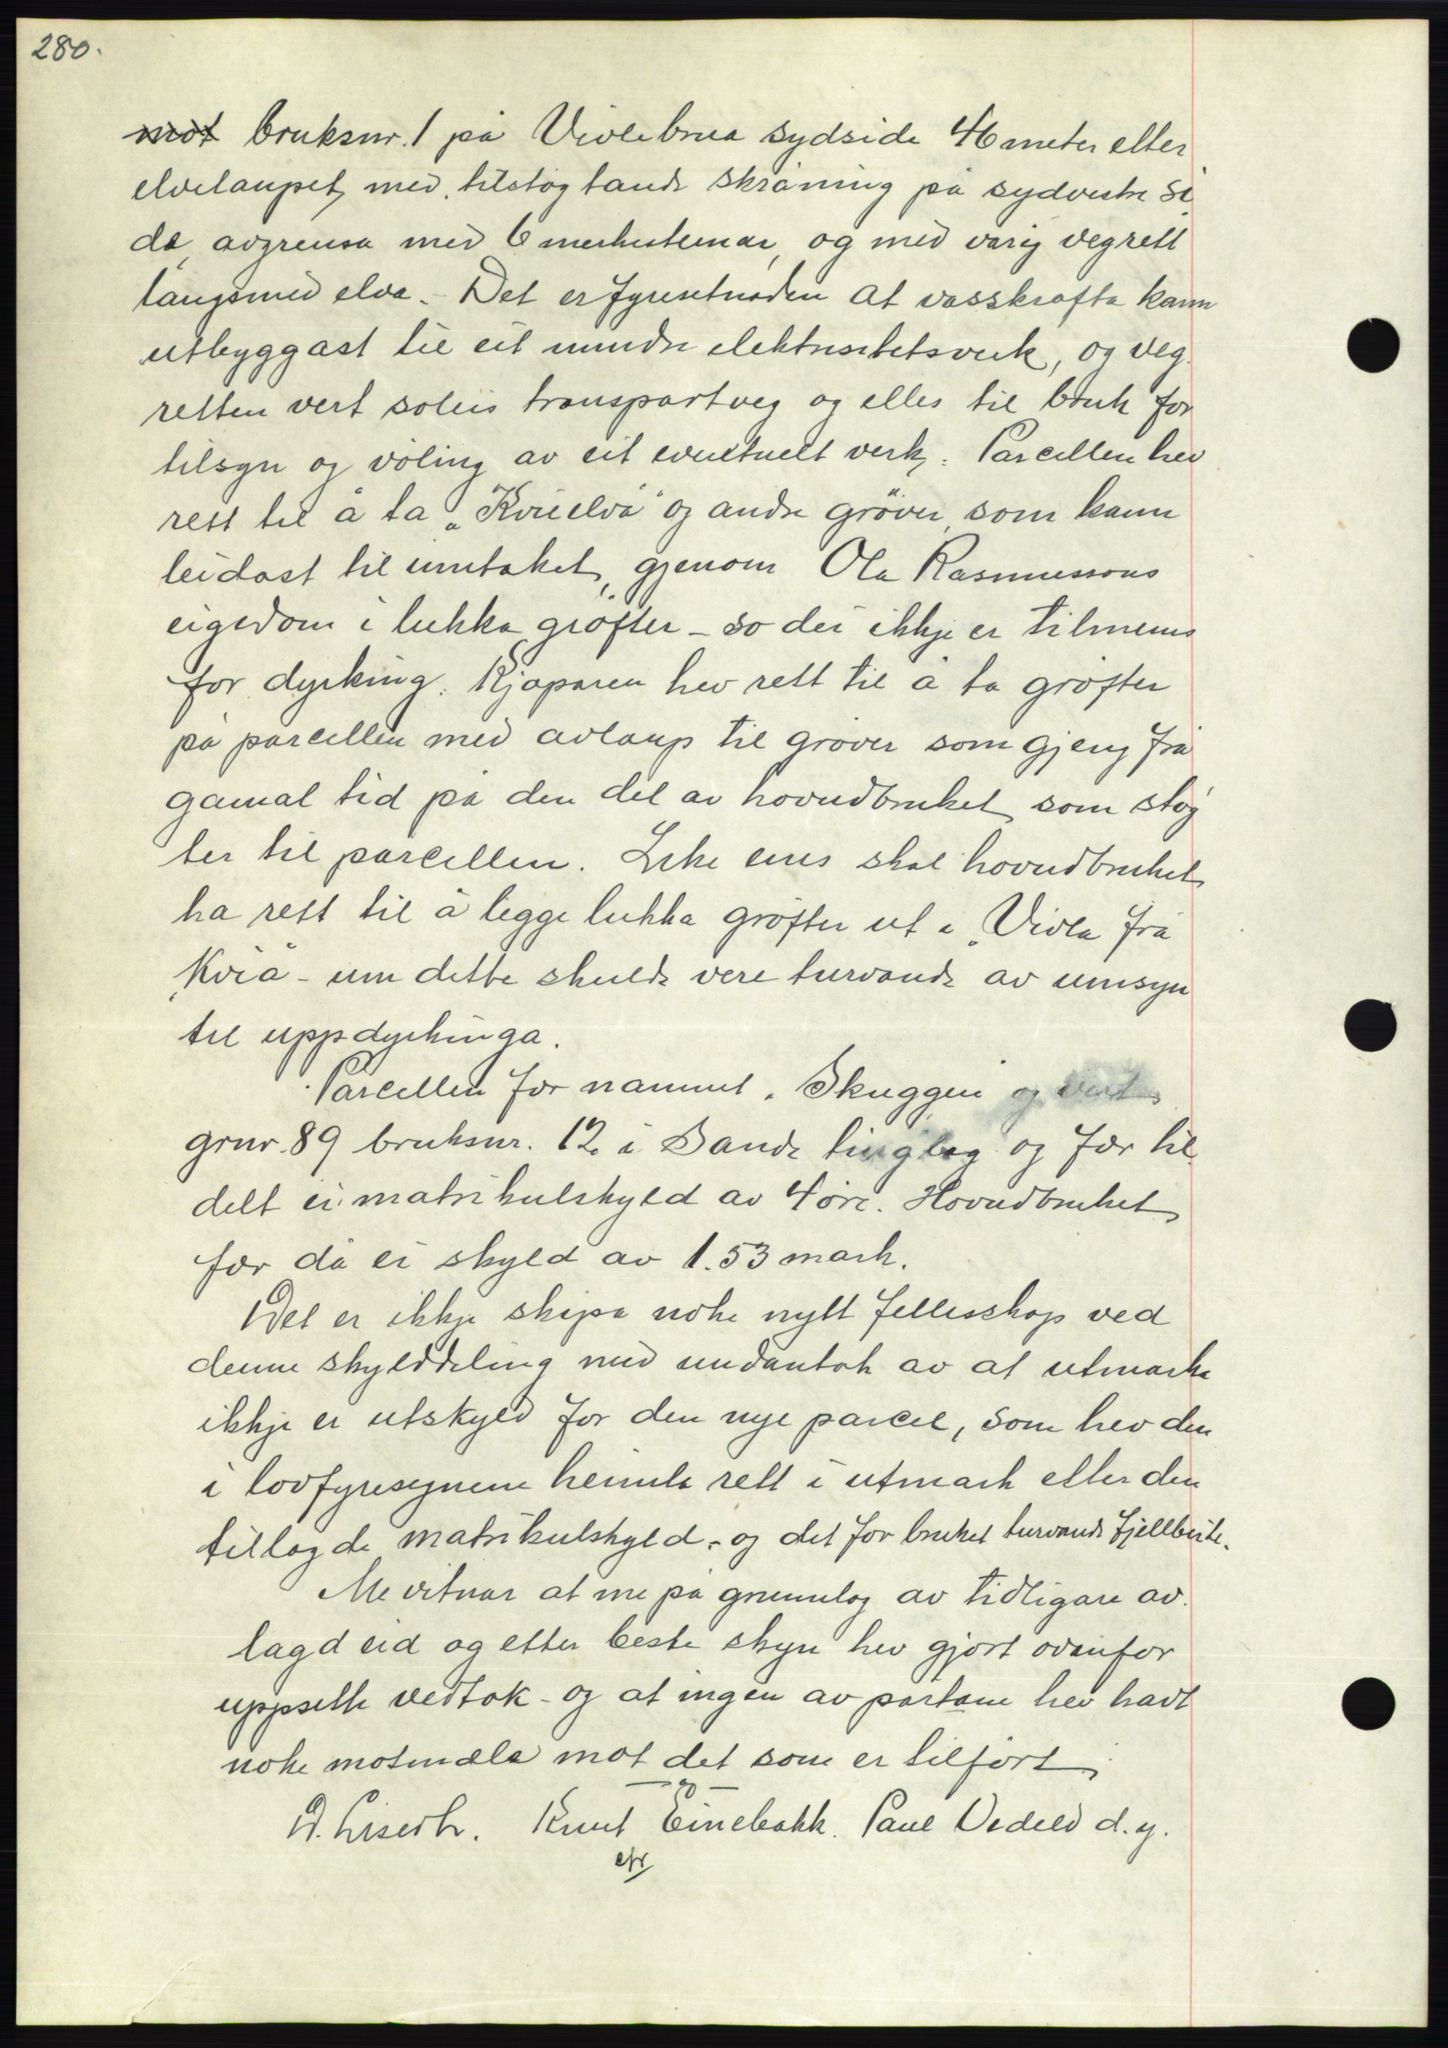 280.
mot bruksnr. 1 på Vivlebrua sydside 46 meter etter
elvelaupet, med tilstøytande skråning på sydvestre si
da, avgrensa med 6 merkesteinar, og med varig vegrett
langsmed elva. Det er fyresetnaden at vasskrafta kann
utbyggast til eit mindre elektrisitetsverk, og veg
retten vert soleis transportveg og elles til bruk for
tilsyn og vøling av eit eventuelt verk. Parcellen hev
rett til å ta "Kvielva" og andre grøver, som kann
leidast til inntaket, gjenom Ola Rasmussons
eigedom i lukka grøfter - so dei ikkje er til meins
for dyrking. Kjøparen hev rett til å ta grøfter
på parcellen med avlaup til grøver som gjeng frå
gamal tid på den del av hovudbruket som støy
ter til parcellen. Like eins skal hovudbruket
ha rett til å legge lukka grøfter ut i "Vivla" frå
"Kvia" - um dette skulde vere turvande av umsyn
til uppdyrkinga.
Parcellen fær namnet "Skuggen" og vert
grnr. 89 bruksnr. 12 i Sande tinglag og fær til
delt ei matrikulskyld av 4 øre. Hovudbruket
fær då ei skyld av 1.53 mark.
Det er ikkje skipa noke nytt fellesskap ved
denne skylddeling med undantak av at utmarka
ikkje er utskyld for den nye parcel, som hev den
i lovfyresegnene heimla rett i utmark etter den
tillagde matrikulskyld - og det for bruket turvande fjellbeite.
Me vitnar at me på grunnlag av tidligare av
lagd eid og etter beste skyn hev gjort ovanfor
uppsette vedtak - og at ingen av partane hev havt
noke motmæle mot det som er tilført.
Knut Einebakk. Paul Vedeld d.y.